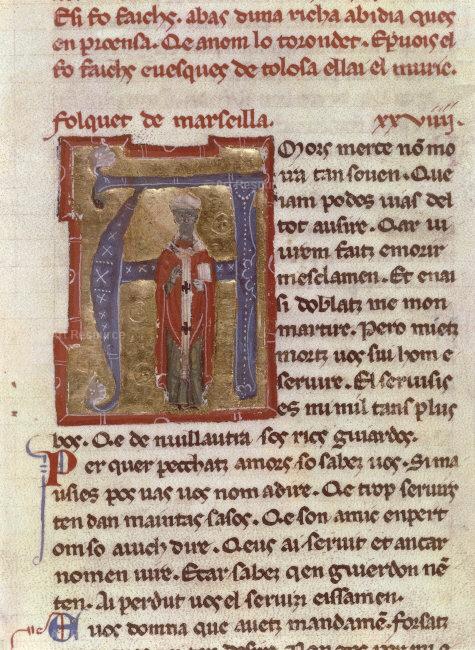 Esi fo faichs. abas duna richa abidia ques
en proensa. Qe a nom lo torondet. E puois el
fo faichs euesques de tolosa e llai el muric.
folquet de marseilla. xxviiij.
Mors merce nō mo
ira tan souen. Que
iam podos uias del
tot ausire. Qar ui
uirem faitz e morir
mesclamen. Et enai
si doblatz me mon
martire. Pero mietz
mortz uos sui hom e
seruire. El seruisis
es mi mil tans plus
bos. Qe de nuill autra ses rics guiardos.
Per quer pecchatz amors so sabez uos. Si ma
usies pos uas uos nom adire. Qe trop seruirs
ten dan maintas sasos. Qe son amic en pert
om so auch dire. Qeus ai seruit et ancar
no men uire. E car sabez qen guierdon nē
ten. Ai perdut uos el seruizi eissamen.
uos domna que auetz mandamē. forsatz